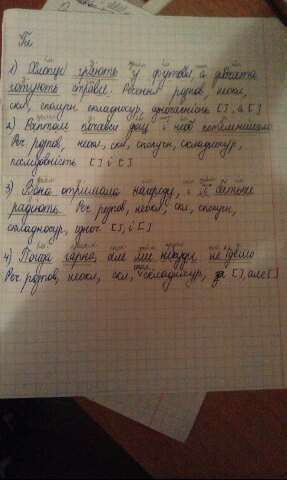 1) Хлопці грають у футбол, а дівчата
готують страви. Речення розпов, неокл,
скл, сполучн складносур, одночасність [ ], а [ ]
2) Раптом почався дощ і небо потемнішало
Реч розпов, неокл, скл, сполучн, складносур,
послідовність [ ] і [ ]
3) Вона отримала нагороду, і її батьки
радіють. Реч розпов, неокл, скл, сполучн,
складносур, одноч [ ], і [ ]
4) Погода гарна, але ми нікуди не йдемо
Реч розпов, неокл, скл, складносур, [ ], але [ ]